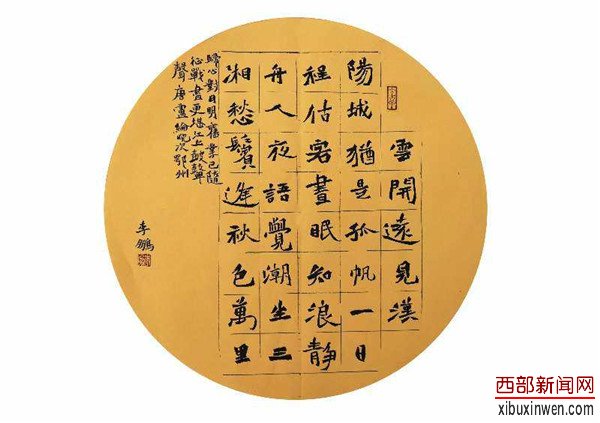 雲開遠見漢
陽城猶是孤帆一日
程估客晝眠知浪靜
舟人夜語覺潮生三
湘愁鬢逢秋色萬里
歸心對月明舊業已隨
征戰盡更堪江上鼓鼙
聲唐盧綸晚次鄂州
李鵬
西部新闻网
xibuxinwen.com